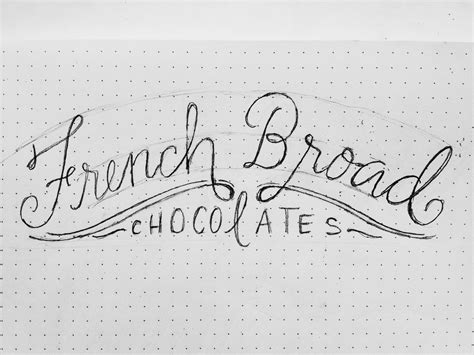 French Broad
CHOCOlATES